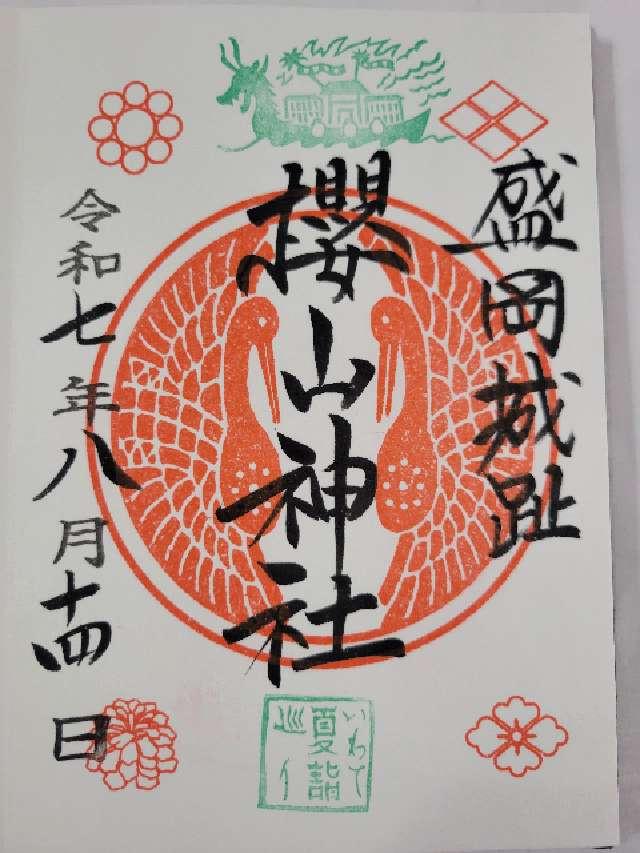 盛岡城趾
櫻山神社
令和七年八月十四日
いわて
夏詣
巡り